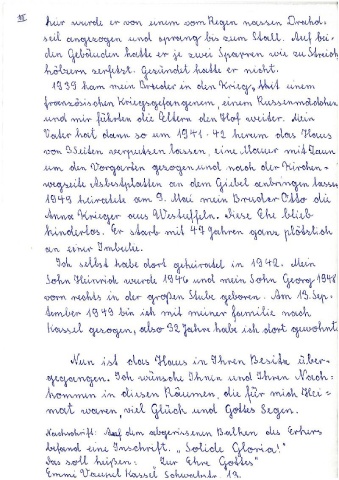 III
hier wurde er von einem vom Regen nassen Draht-
seil angezogen und sprang bis zum Stall. Auf bei-
den Gebäuden hatte er je zwei Sparren wie zu Streich
hölzern zerfetzt. Gezündet hatte er nicht.
1939 kam mein Bruder in den Krieg. Mit einem
französischen Kriegsgefangenen, einem Russenmädchen
und mir führten die Eltern den Hof weiter. Mein
Vater hat dann so um 1941-42 herum das Haus
von 3 Seiten verputzen lassen, eine Mauer mit Zaun
um den Vorgarten gezogen und nach der Kirchen-
wegseite Asbestplatten an dem Giebel anbringen lassen
1949 heiratete am 9. Mai mein Bruder Otto die
Anna Krieger aus Westuffeln. Diese Ehe blieb
kinderlos. Er starb mit 47 Jahren ganz plötzlich
an einer Embolie.
Ich selbst habe dort geheiratet in 1942. Mein
Sohn Heinrich wurde 1946 und mein Sohn Georg 1948
vorn rechts in der großen Stube geboren. Am 19. Sep-
tember 1949 bin ich mit meiner Familie nach
Kassel gezogen, also 32 Jahre habe ich dort gewohnt
Nun ist das Haus in Ihren Besitz über-
gegangen. Ich wünsche Ihnen und Ihren Nach-
kommen in diesen Räumen, die für mich Hei-
mat waren, viel Glück und Gottes Segen.
Nachschrift: Auf dem abgerissenen Balken des Erkers
befand eine Inschrift. "Solide Gloria!"
Das soll heißen: Zur Ehre Gottes"
Emme Vaupel Kassel 13.